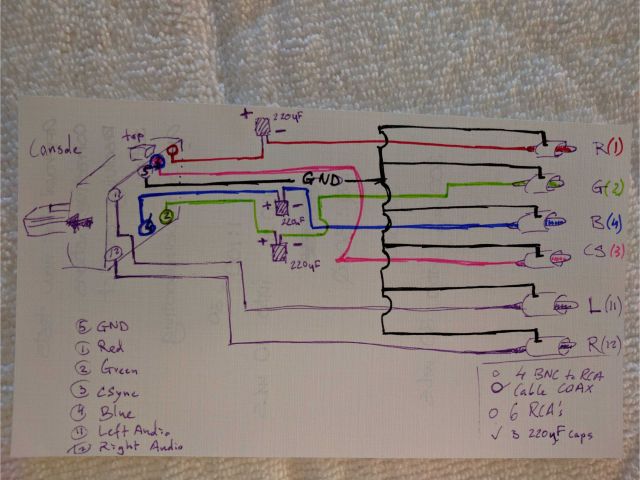 + 220µF
-
Console
top
R(1)
5
GND
G(2)
11
4
2
+ -
220µF
B(4)
+ -
220µF
CS(3)
12
L(11)
R(12)
5 GND
1 Red
2 Green
3 CSync
4 Blue
11 Left Audio
12 Right Audio
4 BNC to RCA
Cable COAX
6 RCA's
3 220µF caps